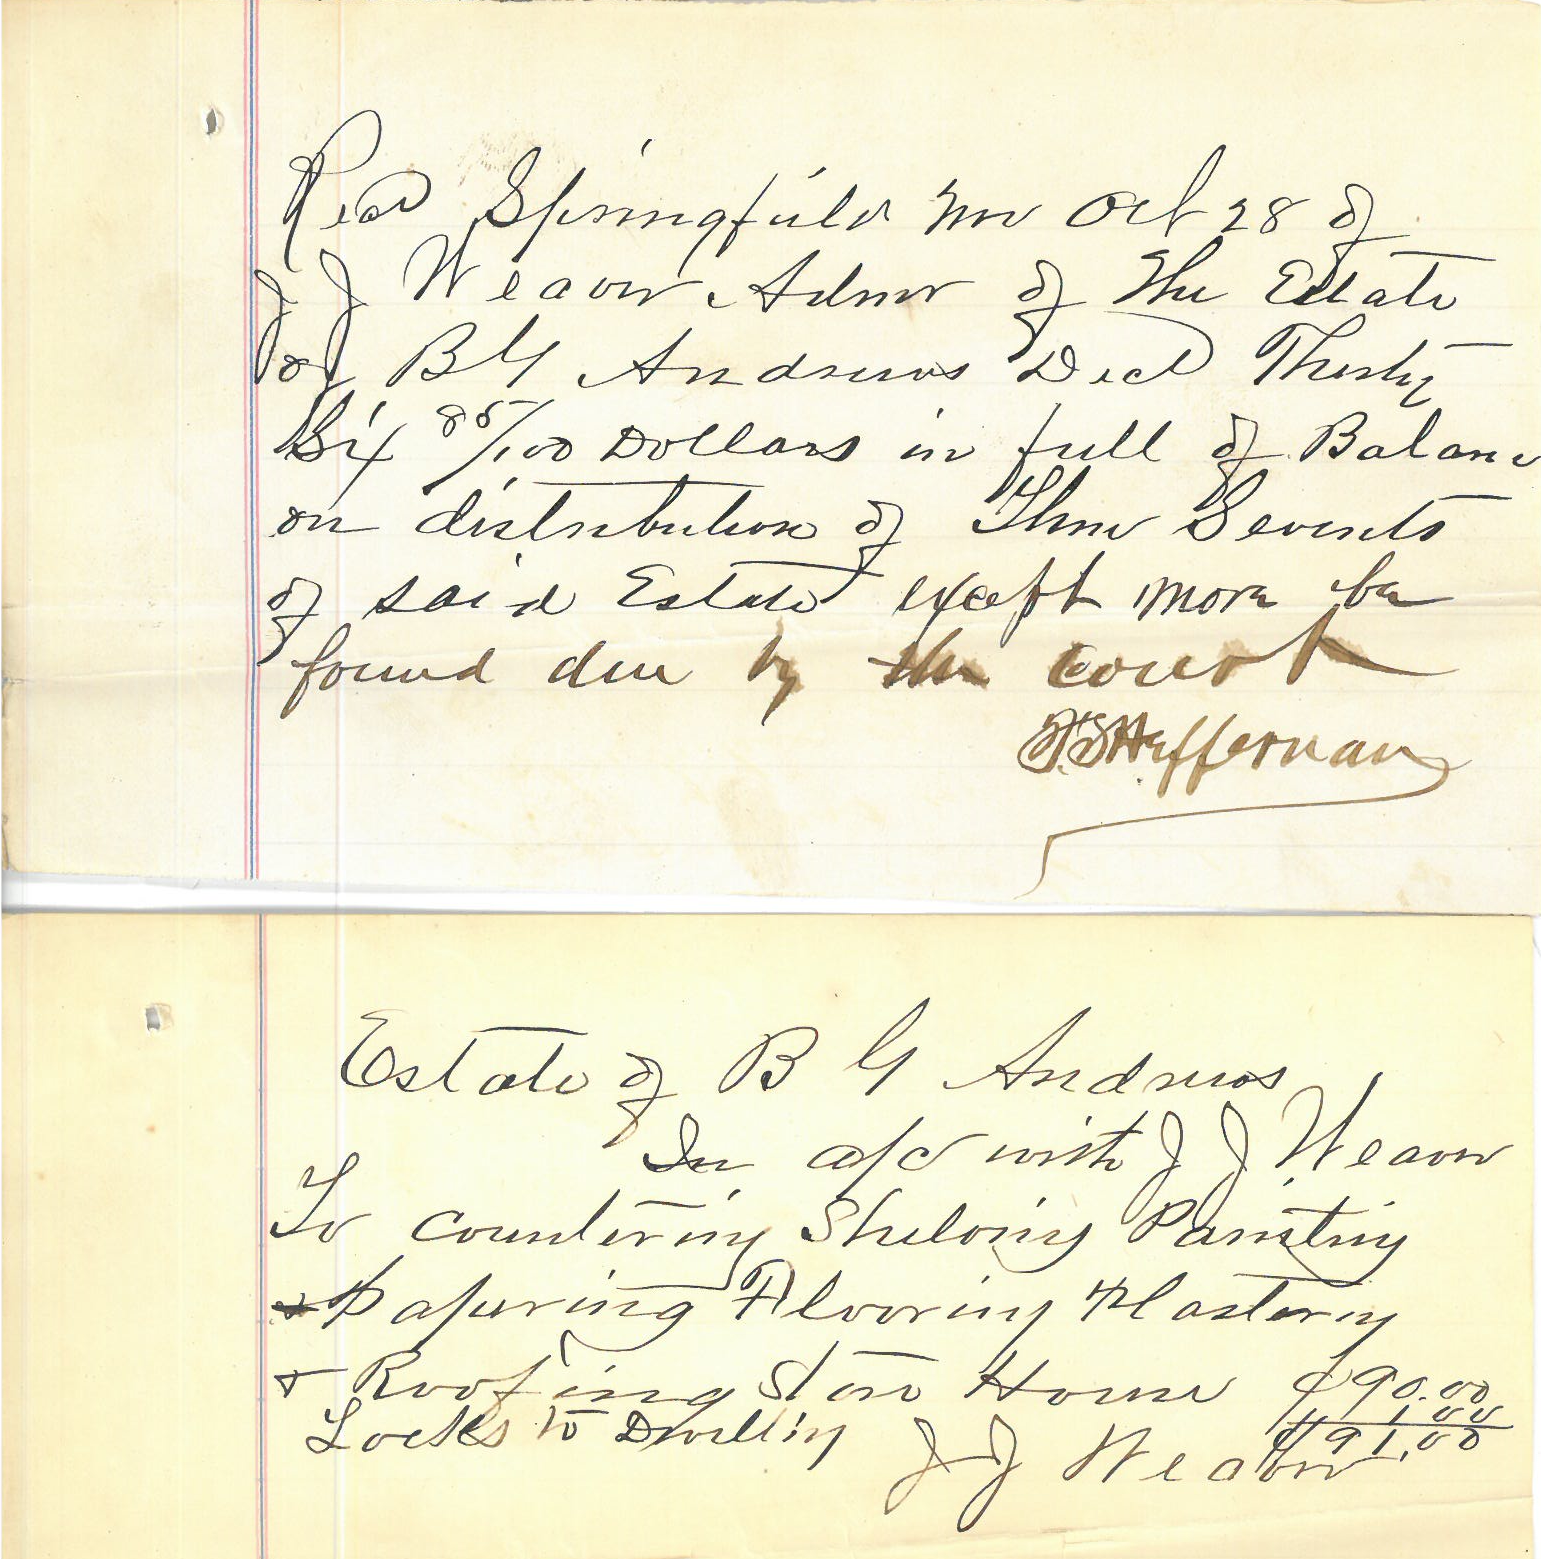 Recd Springfield Mo Oct 28 of
J J Weaver Admr of The Estate
of B G Andrews Decd Thirty
Six 85/100 Dollars in full of Balance
on distribution of Three Sevents
of said Estate except more be
found due by the court
Heffernan
Estate of B G Andrews
In a/c with J J Weaver
To Countering Shelving Painting
& Papering Flooring Plastering
& Roofing Store House $90.00
Locks to Dwelling 1.00
$91.00
J J Weaver